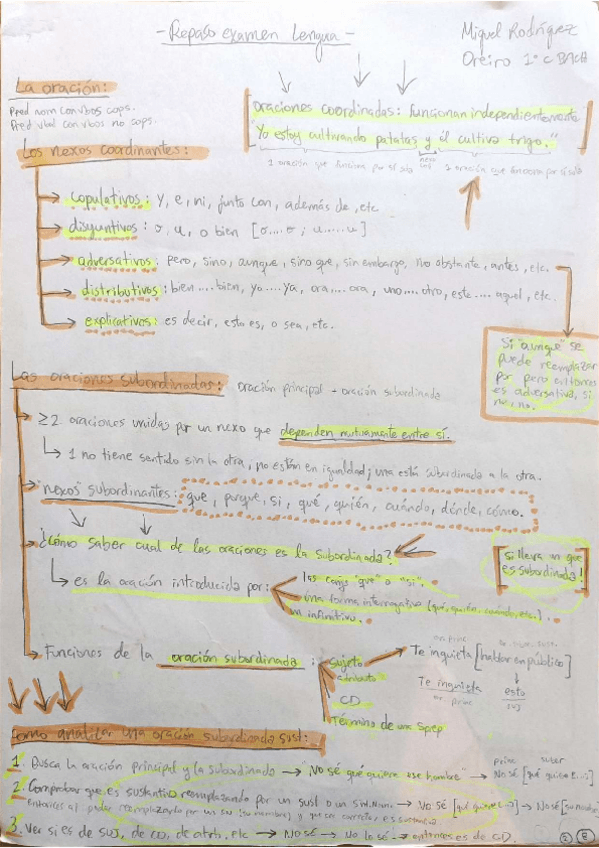 - Repaso examen Lengua -
Miguel Rodríguez
Oreiro 1º C BACH
La oración:
Pred nom con vbos cops.
Pred vbal con vbos no cops.
oraciones coordinadas: funcionan independientemente
"Yo estoy cultivando patatas y él cultiva trigo."
1 oración que funciona por sí sola nexo 1 oración que funciona por sí sola
Los nexos coordinantes:
copulativos: y, e, ni, junto con, además de, etc
disyuntivos: o, u, o bien [o.... o ; u......u]
adversativos: pero, sino, aunque, sino que, sin embargo, no obstante, antes, etc.
distributivos: bien.... bien, ya.... ya, ora.... ora, uno.... otro, este.... aquel, etc.
explicativos: es decir, esto es, o sea, etc.
Si "aunque" se
puede reemplazar
por pero entonces
es adversativa, si
no, no.
Las oraciones subordinadas: oración principal - oración subordinada
≥2 oraciones unidas por un nexo que dependen mutuamente entre sí.
1 no tiene sentido sin la otra, no están en igualdad; una está subordinada a la otra.
"nexos" subordinantes: que, porque, si, qué, quién, cuándo, dónde, cómo.
¿Cómo saber cual de las oraciones es la subordinada?
si lleva un que
es subordinada!
es la oración introducida por:
las conjs "que" o "si".
una forma interrogativa (qué, quién, cuándo, etc.)
un infinitivo.
Funciones de la oración subordinada:
sujeto
atributo
CD
Término de una Sprep
or princ
Te inquieta [hablar en público]
Te inquieta esto
or princ SUJ
Como analizar una oración subordinada sust:
1. Busca la oración principal y la subordinada → "No sé qué quiere ese hombre" → No sé [qué quiere...]
2. Comprobar que es sustantiva reemplazando por un sust o un Sint. Nom. → No sé [qué quiere...] → No sé [su nombre]
entonces al poder reemplazarlo por un sus (su nombre) y que ser correcto, es sustantiva
3. Ver si es de SUJ, de CD, de atrib, etc → No sé → No lo sé → entonces es de CD.